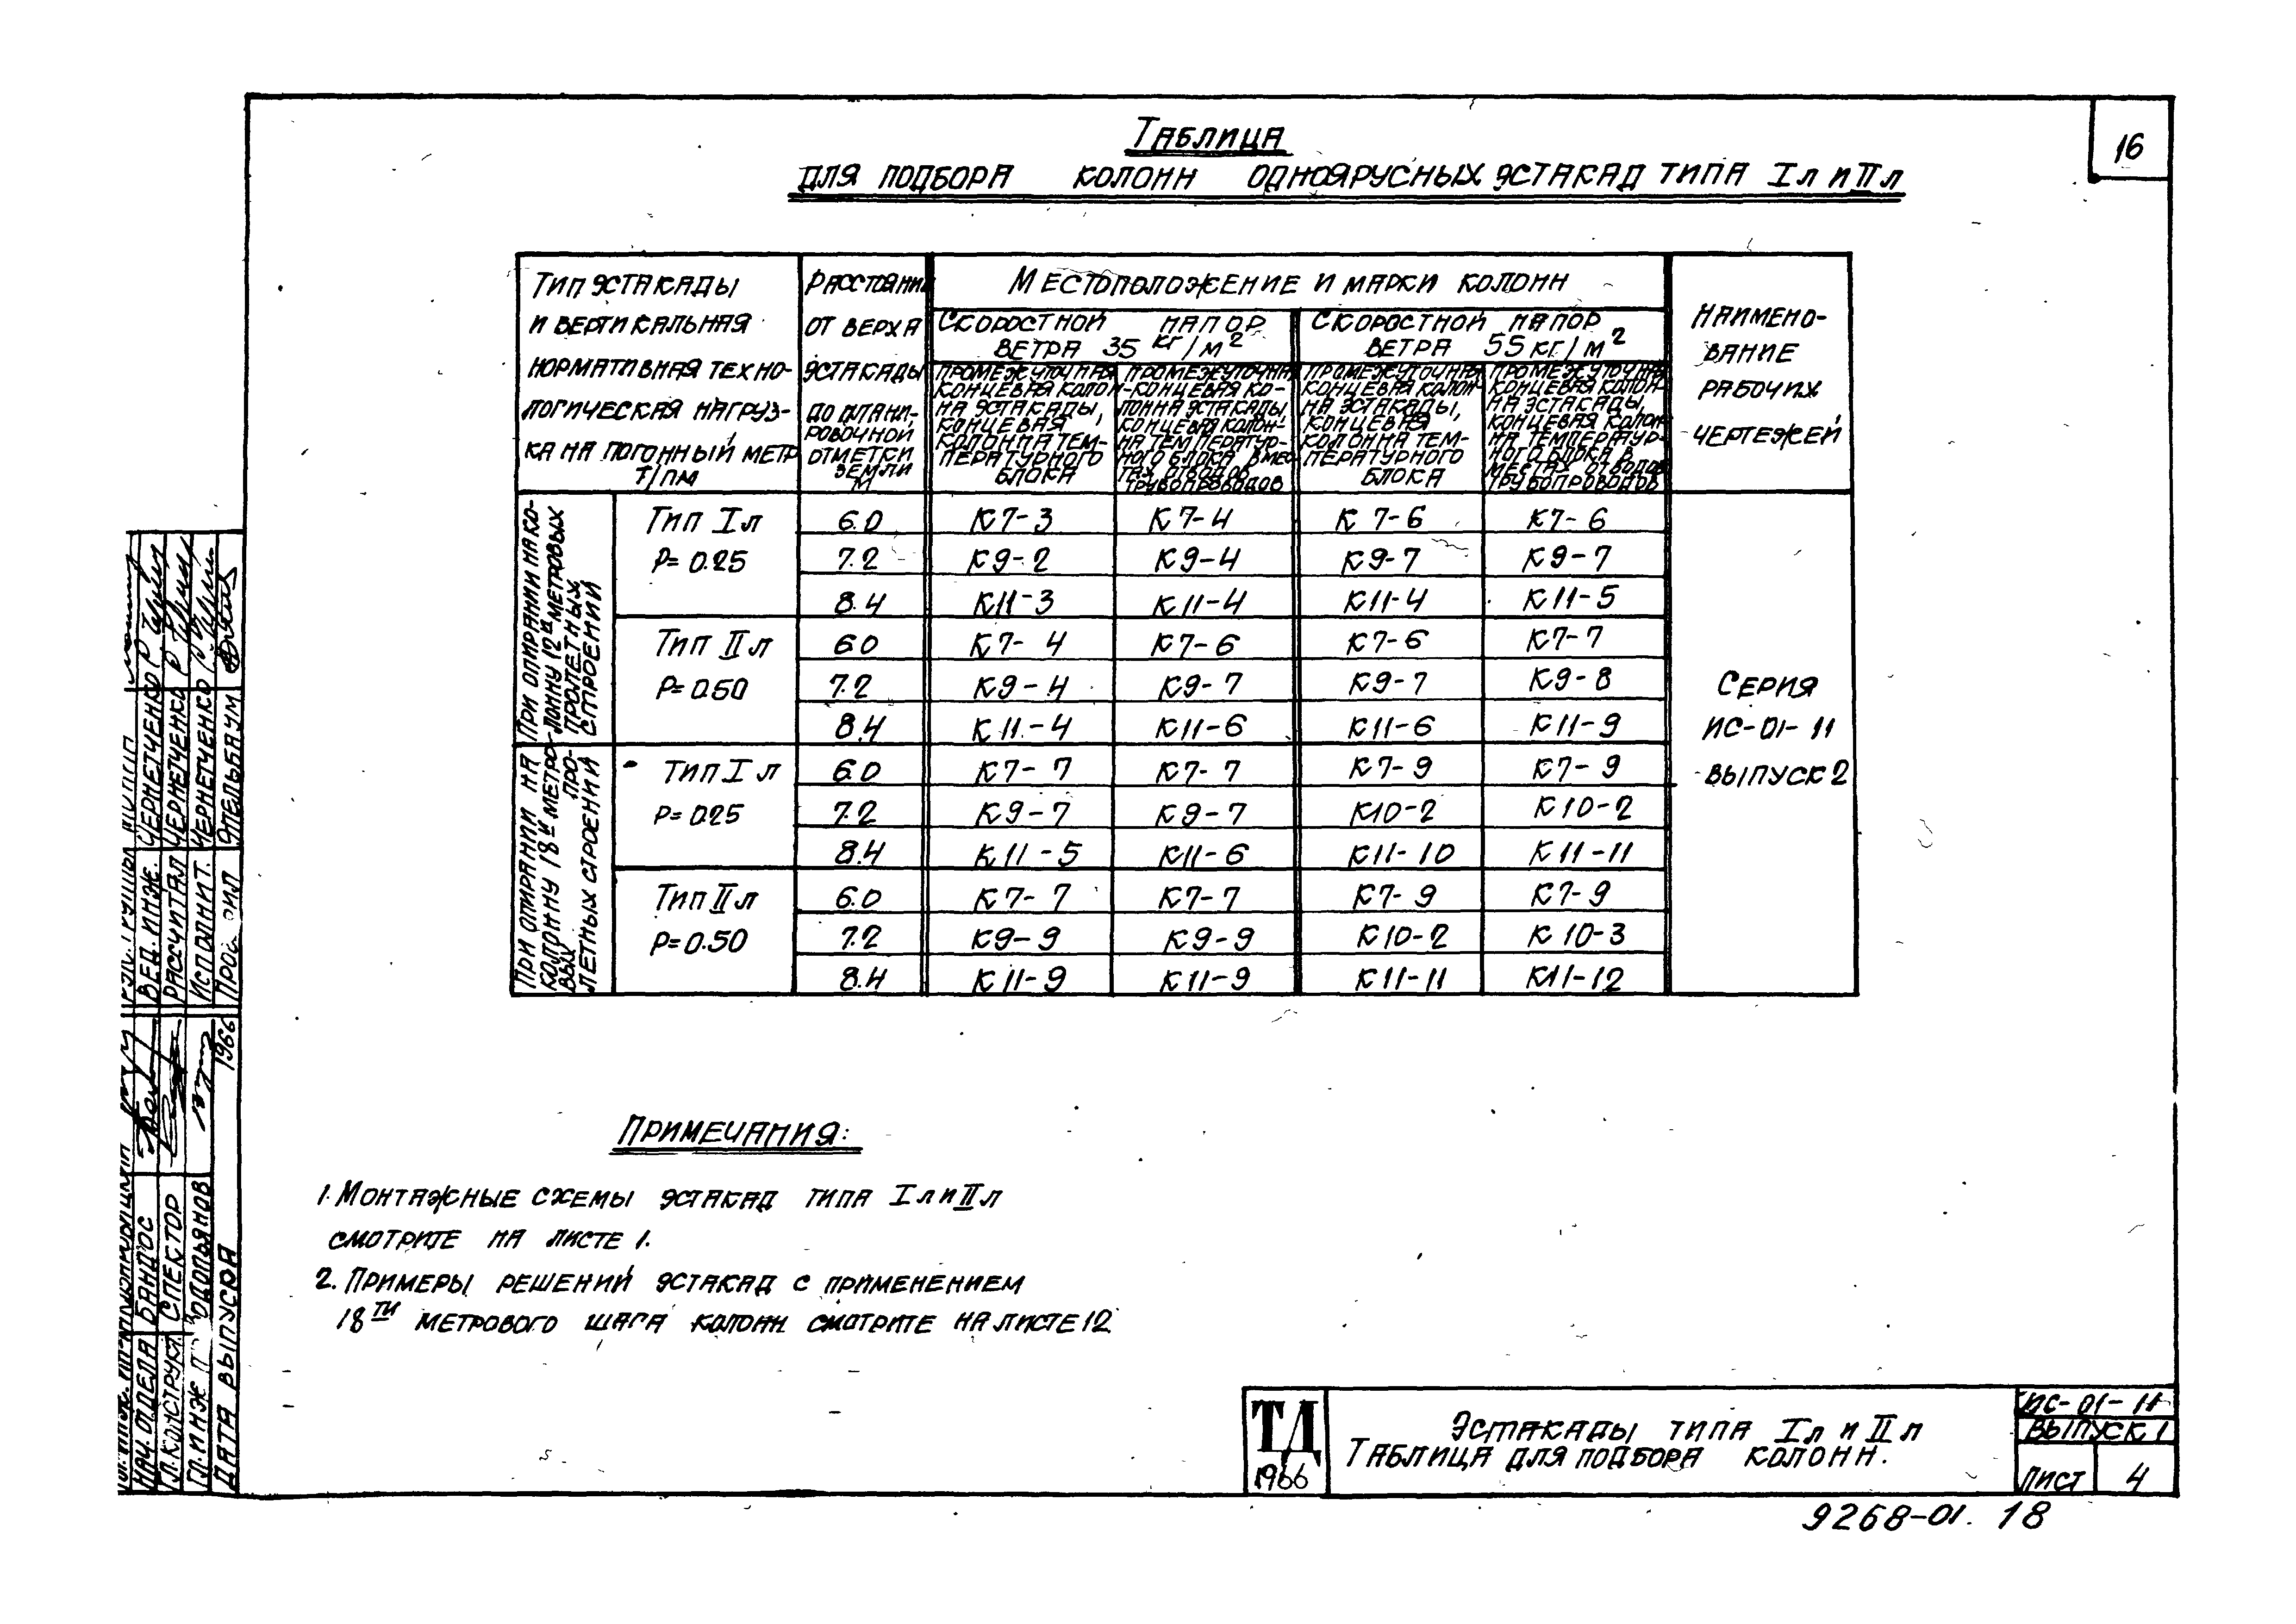 16
Таблица
для подбора колонн одноярусных эстакад типа Iл и IIл
Тип эстакады
и вертикальная
нормативная техно-
логическая нагруз-
ка на погонный метр
т/пм
Расстояние
от верха
эстакады
до плани-
ровочной
отметки
земли
м
Местоположение и марки колонн
Скоростной напор
ветра 35 кг/м2
Скоростной напор
ветра 55 кг/м2
Промежуточная
концевая колон-
на эстакады,
концевая
колонна тем-
пературного
блока
Промежуточная
-концевая ко-
лонна эстакады,
концевая колон-
на температур-
ного блока в мес-
тах отводов
трубопроводов
Промежуточная
концевая колон-
на эстакады,
концевая
колонна тем-
пературного
блока
Промежуточная
концевая колон-
на эстакады,
концевая колон-
на температур-
ного блока в
местах отводов
трубопроводов
Наимено-
вание
рабочих
чертежей
При опирании на ко-
лонну 12и метровых
пролетных
строений
Тип Iл
P=0.25
6.0 К7-3 К7-4 К7-6 К7-6
7.2 К9-2 К9-4 К9-7 К9-7
8.4 К11-3 К11-4 К11-4 К11-5
Тип IIл
P=0.50
6.0 К7-4 К7-6 К7-6 К7-7
7.2 К9-4 К9-7 К9-7 К9-8
8.4 К11-4 К11-6 К11-6 К11-9
При опирании на
колонну 18и метро-
вых про-
летных строений
Тип Iл
P=0.25
6.0 К7-7 К7-7 К7-9 К7-9
7.2 К9-7 К9-7 К10-2 К10-2
8.4 К11-5 К11-6 К11-10 К11-11
Тип IIл
P=0.50
6.0 К7-7 К7-7 К7-9 К7-9
7.2 К9-9 К9-9 К10-2 К10-3
8.4 К11-9 К11-9 К11-11 К11-12
Серия
ИС-01-11
выпуск 2
Примечания:
1. Монтажные схемы эстакад типа Iл и IIл
смотрите на листе 1.
2. Примеры решений эстакад с применением
18ти метрового шага колонн смотрите на листе 12.
Вед. инж. Чернетченко
Рассчитал Чернетченко
Исполнит. Чернетченко
Опельбаум
Нач. отдела Бандос
Гл. конструкт. Спектор
Гл. инж. п
Дата выпуска 1966
ТД
1966
Эстакады типа Iл и IIл
Таблица для подбора колонн.
ИС-01-11
выпуск 1
Лист 4
9268-01 18